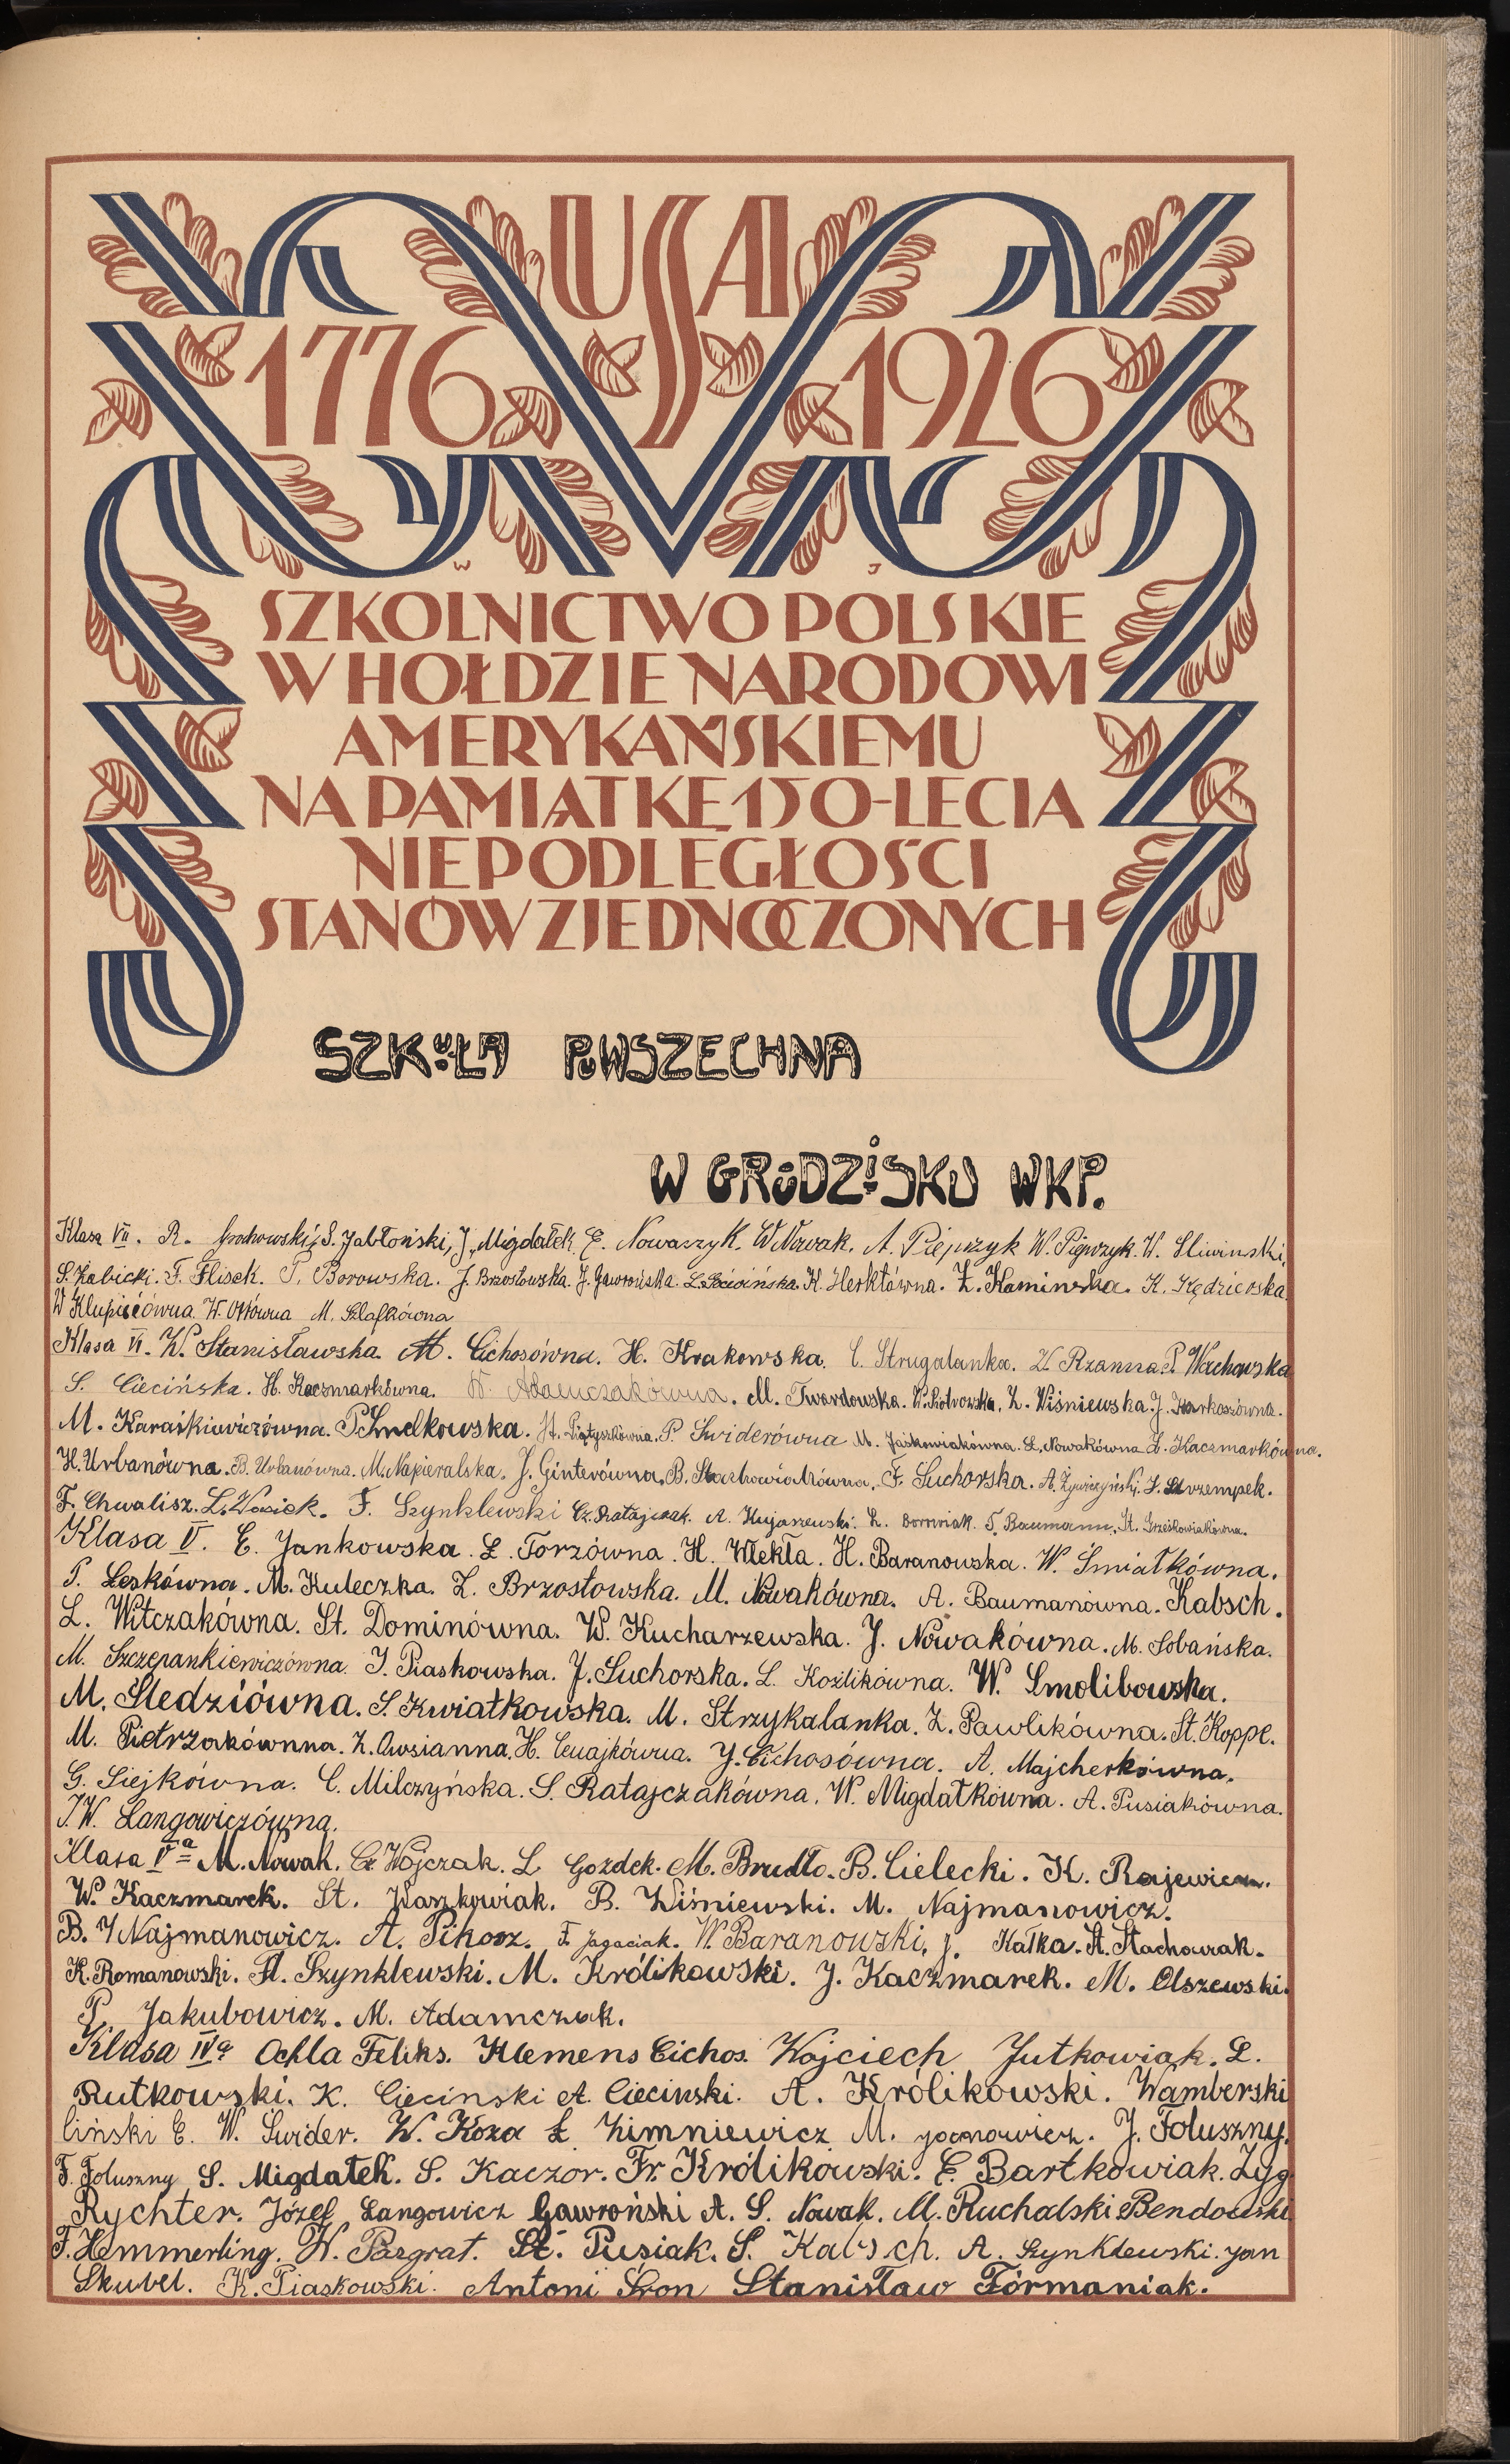 USA
1776 1926
W J
SZKOLNICTWO POLSKIE
W HOŁDZIE NARODOWI
AMERYKAŃSKIEMU
NA PAMIĄTKĘ 150-LECIA
NIEPODLEGŁOŚCI
STANÓW ZJEDNOCZONYCH
SZKOŁA POWSZECHNA
W GRODZISKU WKP.
Klasa VII. R. Grochowski, S. Jabłoński, J. Migdałek. E. Nowaczyk. W. Nowak. A. Piepszyk W. Piepszyk. W. Sliwinski,
S. Żabicki. F. Flisek. P. Borowska. J. Brzostowska. J. Gawrońska. L. H. Herktówna. Z. Kaminska. K. Kędzierska.
W W. Ottówna M. Szlafkówna
Klasa VI. W. Stanisławska. M. Cichosówna. H. Krakowska. C. Strugalanka. W. Rzanna. P. Wachowska
S. Ciecińska. H. Kaczmarkówna. W. Adamczakówna. M. Twardowska. W. Piotrowska. Z. Wiśniewska. J.
M. Karaśkiewiczówna. P. Smelkowska. St. P. Swiderówna M. Jaśkowiakówna. L. Nowakówna Z. Kaczmarkówna.
H. Urbanówna. B. Urbanówna. M. Napieralska. J. Ginterówna. B. Stachowiakówna. F. Suchorska. A. Żywiczyński. J. Strzempek.
F. Chwalisz. L. F. Szynklewski Cz. Ratajczak. A. Kujaszewski. L. Borowiak. T. Baumann. St. Grześkowiakówna.
Klasa V. E. Jankowska. L. Torzówna. H. Wlekła. H. Baranowska. W. Smiatkówna.
P. Leskówna. M. Kuleczka. Z. Brzostowska. M. Nowakówna. A. Baumanówna. Kabsch.
L. Witczakówna. St. Dominówna. W. Kucharzewska. J. Nowakówna. M. Sobańska.
M. Szczepankiewiczówna. J. Piaskowska. J. Suchorska. L. Koźlikówna. W. Smolibowska.
M. Śledziówna. S. Kwiatkowska. M. Strzykalanka. Z. Pawlikówna. St. Koppe.
M. Pietrzakównna. Z. Owsianna. H. J. Cichosówna. A. Majcherkówna.
G. Siejkówna. C. Milczyńska. S. Ratajczakówna. W. Migdałkówna. A. Pusiakówna.
I. W. Langowiczówna.
Klasa Va M. Nowak. Cz. Wojczak. L. Gozdek. M. Brudło. B. Cielecki. K. Rajewicz.
W. Kaczmarek. St. Waszkowiak. B. Wiśniewski. M. Najmanowicz.
B. Najmanowicz. A. Pikosz. F. Jagaciak. W. Baranowski, J. Kałka. St. Stachowiak.
K. Romanowski. Fl. Szynklewski. M. Królikowski. J. Kaczmarek. M. Olszewski.
P. Jakubowicz. M. Adamczak.
Klasa IVa Ochla Feliks. Klemens Cichos. Wojciech Jutkowiak. L.
Rutkowski. K. Cieciński A. Cieciński. A. Królikowski. Wamberski
liński C. W. Swider. W. Koza L Zimniewicz M. J. Foluszny.
F. Foluszny S. Migdałek. S. Kaczor. Fr. Królikowski. C. Bartkowiak. Zyg
Rychter. Józef Langowicz Gawroński A. S. Nowak. M. Ruchalski Bendowski
F. Hemmerling. W. Pazgrat. St. Pusiak. S. Kabsch. A. Szynklewski. Jan
Skubel. K. Piaskowski. Antoni Śron Stanisław Fórmaniak.